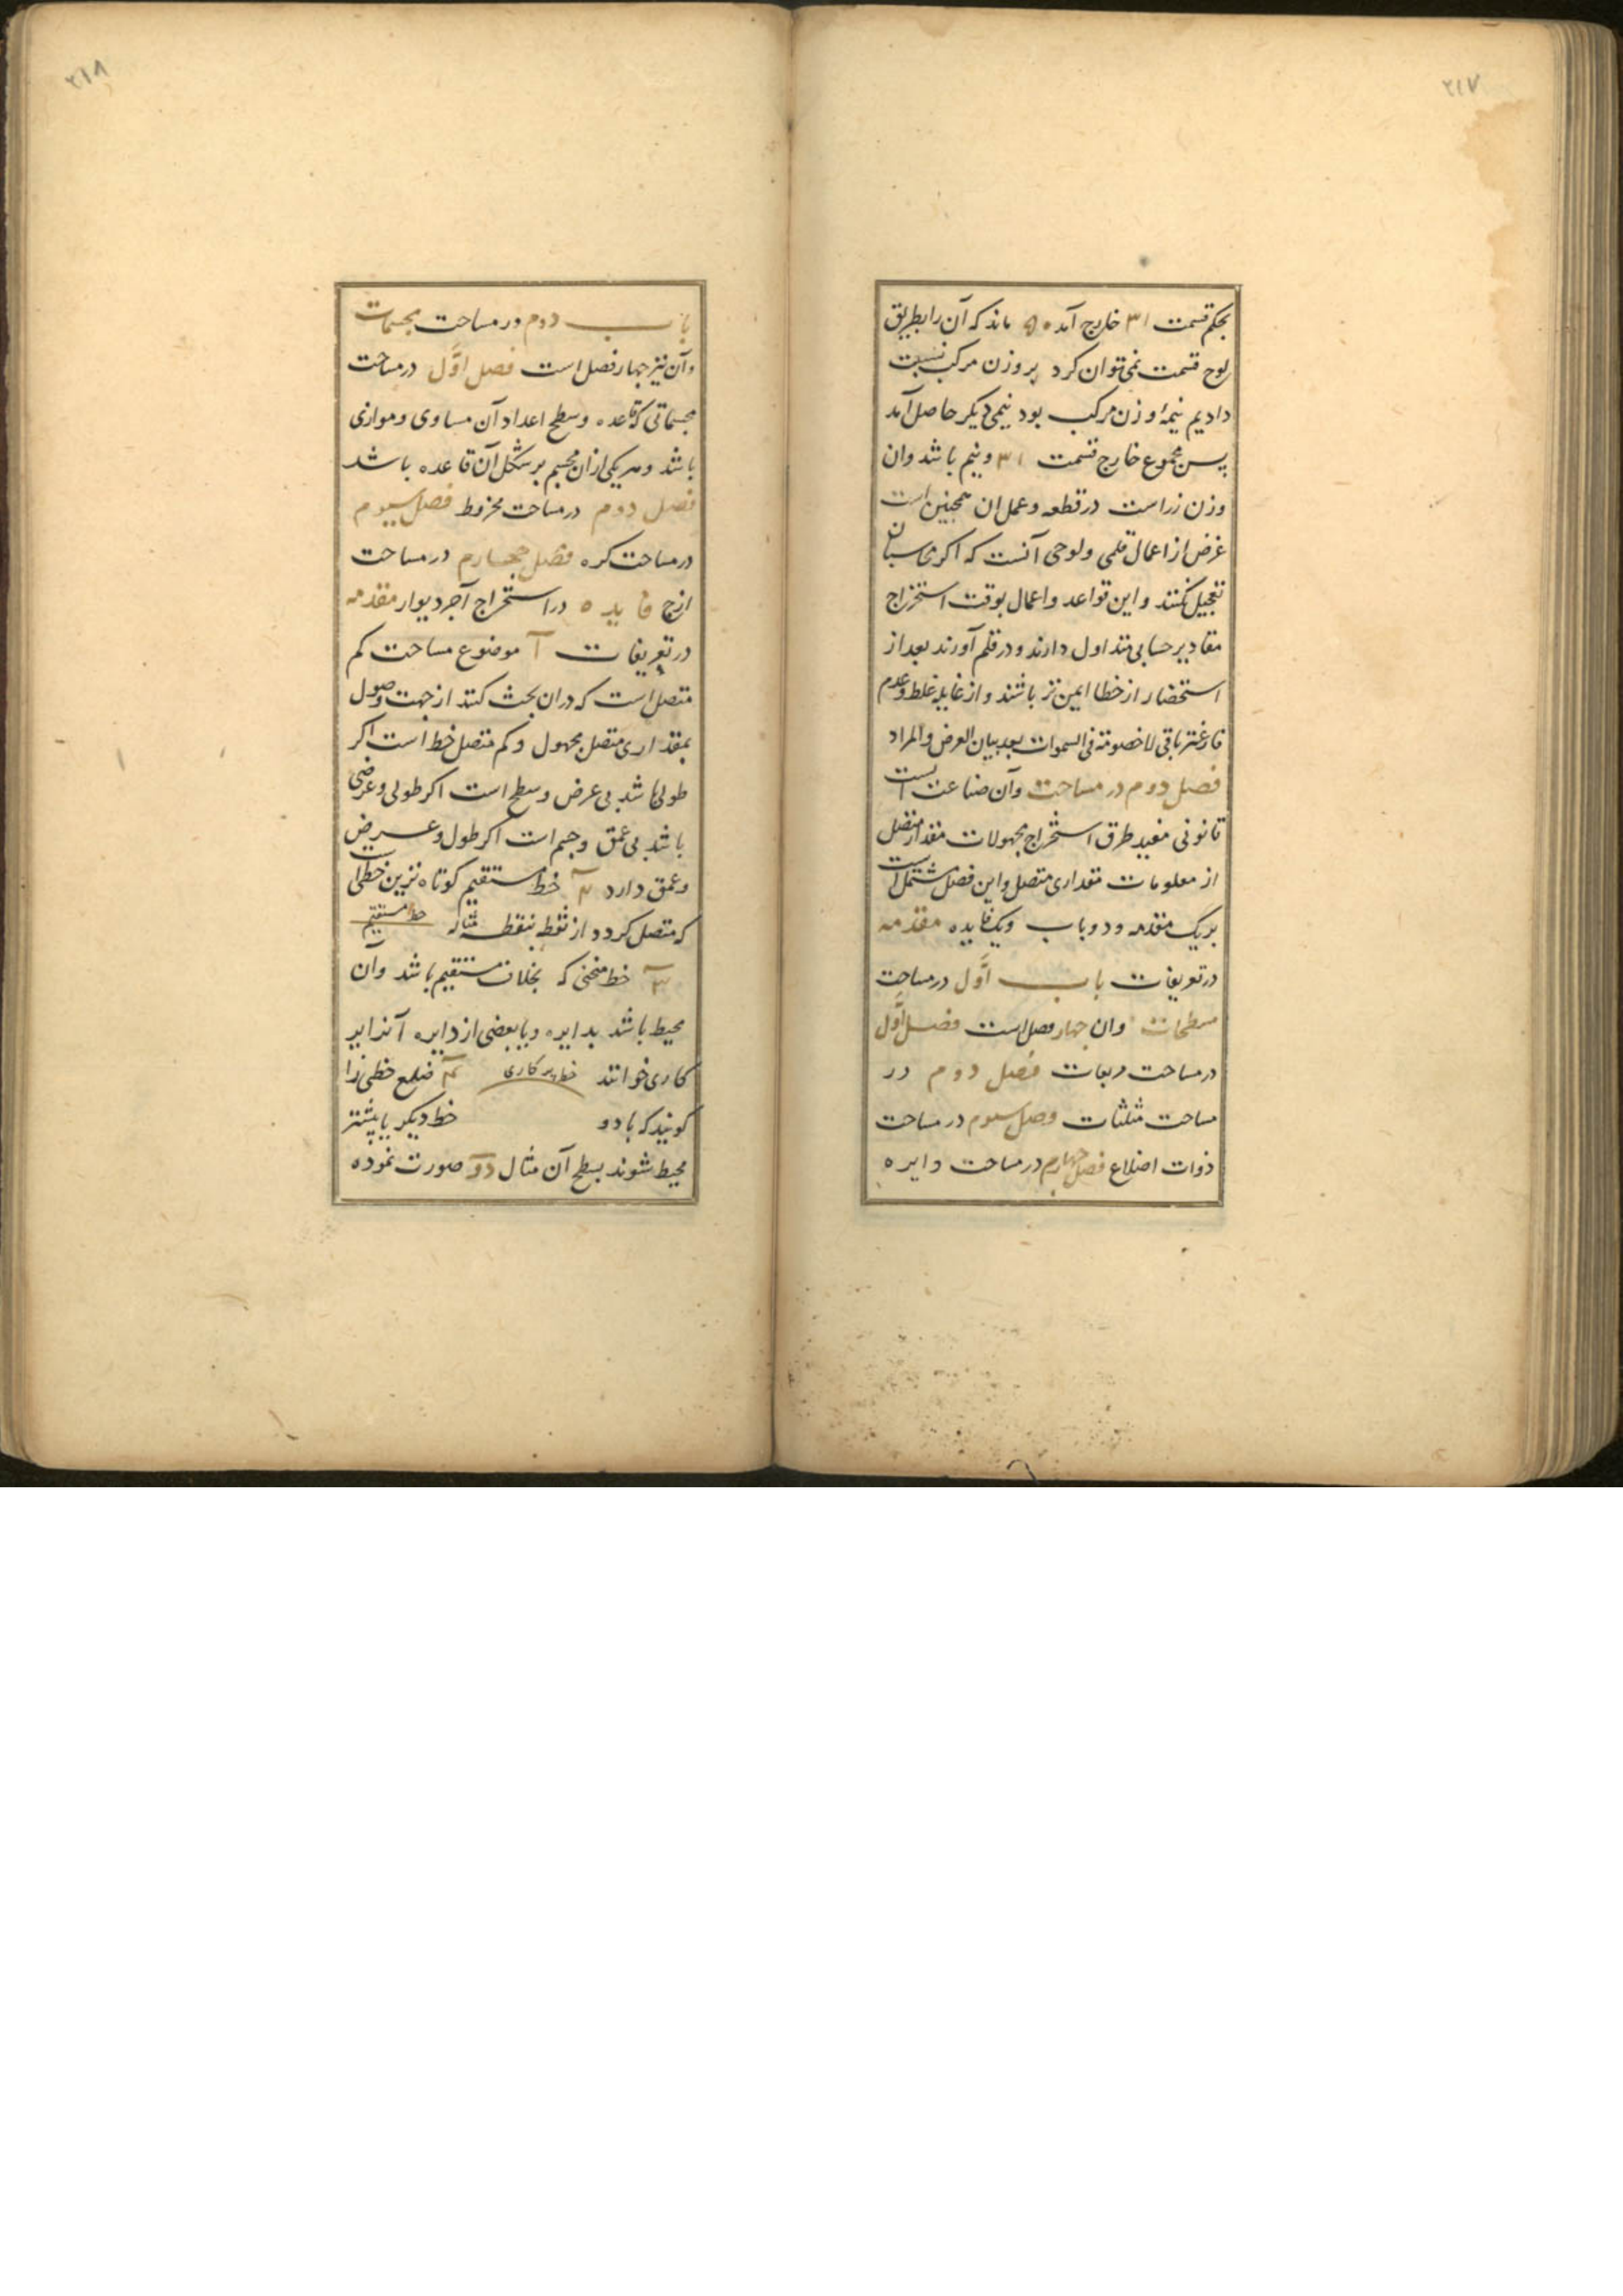 ۲۱۷
بحکم قسمت ۳۱ خارج آمد ۵۰ ماند که آن را بطریق
لوح قسمت نمی‌توان کرد بر وزن مرکب نسبت
دادیم نیمهٔ وزن مرکب بود نیمی دیکر حاصل آمد
پس مجموع خارج قسمت ۳۱ و نیم باشد وان
وزن زر است در قطعه و عمل ان همچنین است
غرض از اعمال قلمی و لوحی آنست که اکر محاسبان
تعجیل نکنند و این قواعد و اعمال بوقت استخراج
مقادیر حسابی متداول دارند و در قلم آورند بعد از
استحضار از خطا ایمن تر باشند و از غایله غلط و عدم
باقی لا خصومة فی السموات بعد بیان الغرض والمراد
فصل دوم در مساحت وآن صناعت است
قانونی مفید طرق استخراج مجهولات مقدار متصل
از معلومات مقداری متصل واین فصل مشتمل است
بریک مقدمه و دو باب ویک فایده مقدمه
در تعریفات باب اوّل در مساحت
مسطحات وان چهار فصل است فصل اوّل
در مساحت مربعات فصل دوم در
مساحت مثلثات فصل سیوم در مساحت
ذوات اضلاع فصل چهارم در مساحت دایره
۲۱۸
باب دوم در مساحت مجسمات
وآن نیز چهار فصل است فصل اوّل در مساحت
مجسماتی که قاعده وسطح اعداد آن مساوی و موازی
باشد و هر یکی از ان مجسم بر شکل آن قاعده باشد
فصل دوم در مساحت مخروط فصل سیوم
در مساحت کره فصل چهارم در مساحت
ازج فایده در استخراج آجر دیوار مقدمه
در تعریفات آ موضوع مساحت کم
متصل است که دران بحث کنند از جهت وصول
بمقداری متصل مجهول و کم متصل خط است اکر
طولی باشد بی عرض و سطح است اکر طولی و عرضی
باشد بی عمق و جسم است اکر طول و عرض
وعمق دارد ۲ خط مستقیم کوتاه ترین خطی است
که متصل کردد از نقطه بنقطه مثاله خط مستقیم
۳ خط منحنی که بخلاف مستقیم باشد وآن
محیط باشد بدایره و یا بعضی از دایره آنرا پر
کاری خوانند خط پرکاری ۴ ضلع خطی را
کویند که با دو خط دیکر یا بیشتر
محیط شوند بسطح آن مثال دو صورت نموده